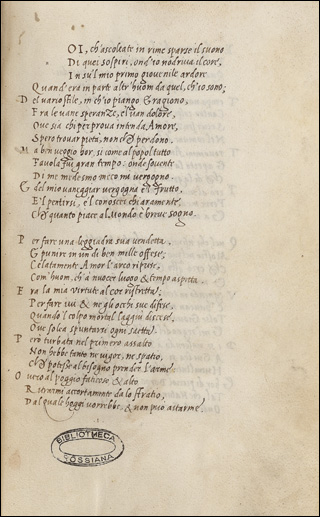 OI, ch'ascoltate in rime sparse il suono
Di quei sospiri, ond'io nodriva il core,
In su'l mio primo giovenile ardore
Quand'era in parte altr'huom da quel, ch'io sono;
Del vario stile, in ch'io piango & ragiono,
Fra le vane speranze, e'l van dolore,
Ove sia chi per prova intenda Amore,
Spero trovar pietà, non che perdono.
Ma ben veggio hor, si come al popol tutto
Favola fui gran tempo: onde sovente
Di me medesmo meco mi vergogno.
Et del mio vaneggiar vergogna è'l frutto,
E'l pentirsi, e'l conoscer chiaramente,
Che quanto piace al Mondo è breve sogno.
Per fare una leggiadra sua vendetta,
Et punire in un dì ben mille offese;
Celatamente Amor l'arco riprese,
Com'huom, ch'a nuocer luogo & tempo aspetta.
Era la mia virtute al cor ristretta;
Per fare ivi & ne gli occhi sue difese,
Quando'l colpo mortal laggiù discese,
Ove solea spuntarsi ogni saetta:
Però turbata nel primero assalto
Non hebbe tanto ne vigor, ne spatio,
Che potesse al bisogno prender l'arme:
O vero al poggio faticoso & alto
Ritrarmi accortamente da lo stratio,
Dal quale hoggi vorrebbe, & non può aitarme.
BIBLIOTHECA
ROSSIANA